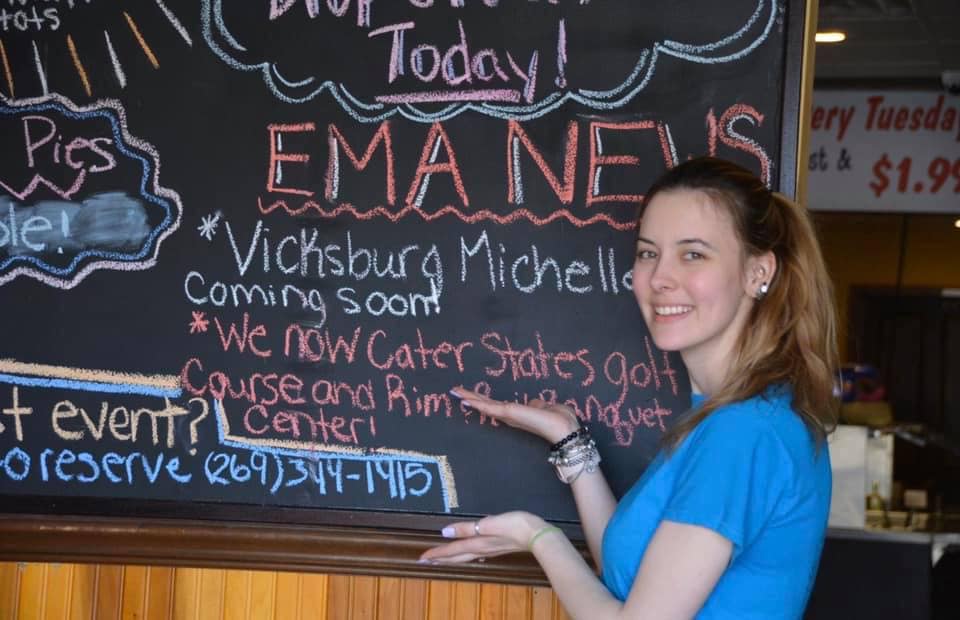 tots
Today!
Pies
ble!
EMA NEWS
*Vicksburg Michelle
Coming soon!
*We now Cater States golf
Course and Rim & Rail Banquet
Center!
t event?
o reserve (269)344-1415
ery Tuesday
st &
$1.99